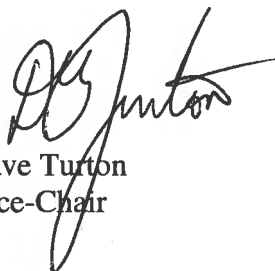 D Turton
ave Turton
ce-Chair